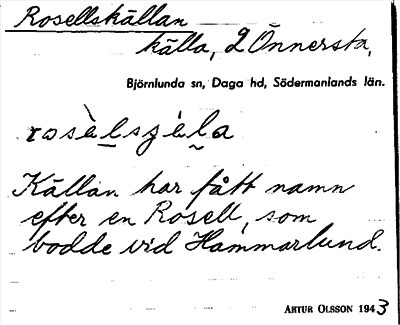 Rosellskällan
källa, 2 Önnersta,
Björnlunda sn, Daga hd, Södermanlands län.
Källan har fått namn
efter en Rosell, som
bodde vid Hammarlund.
ARTUR OLSSON 1943